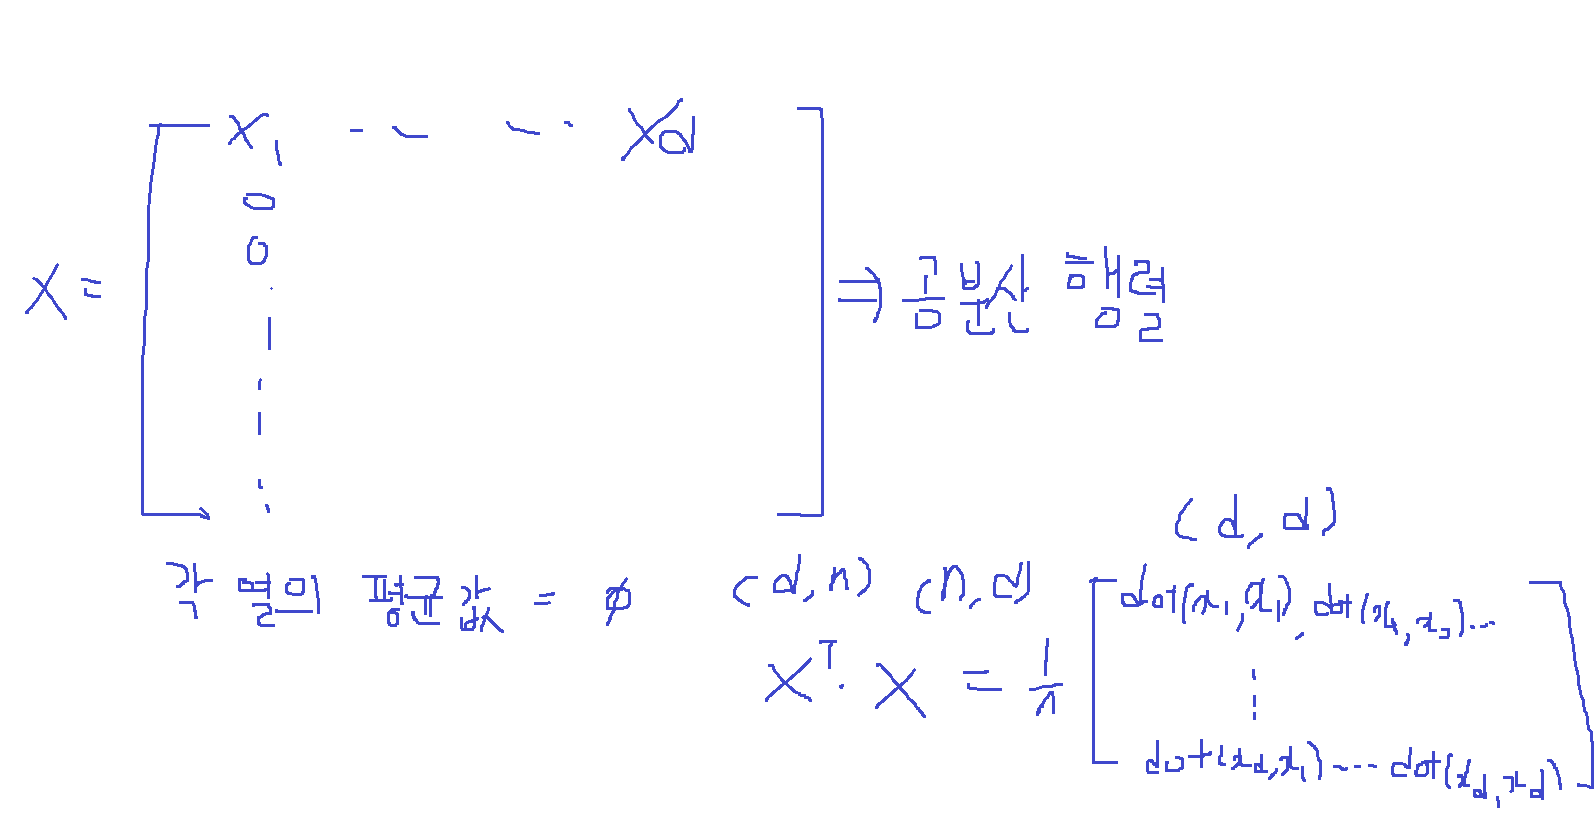 X = [ X₁ - - - - X_d
0
0
] ⇒ 공분산 행렬
각 열의 평균값 = ∅
(d, n) (n, d) (d, d)
Xᵀ · X = 1/n [ dot(x₁, x₁), dot(x₁, x₂) ...
dot(x_d, x₁) ---- dot(x_d, x_d) ]